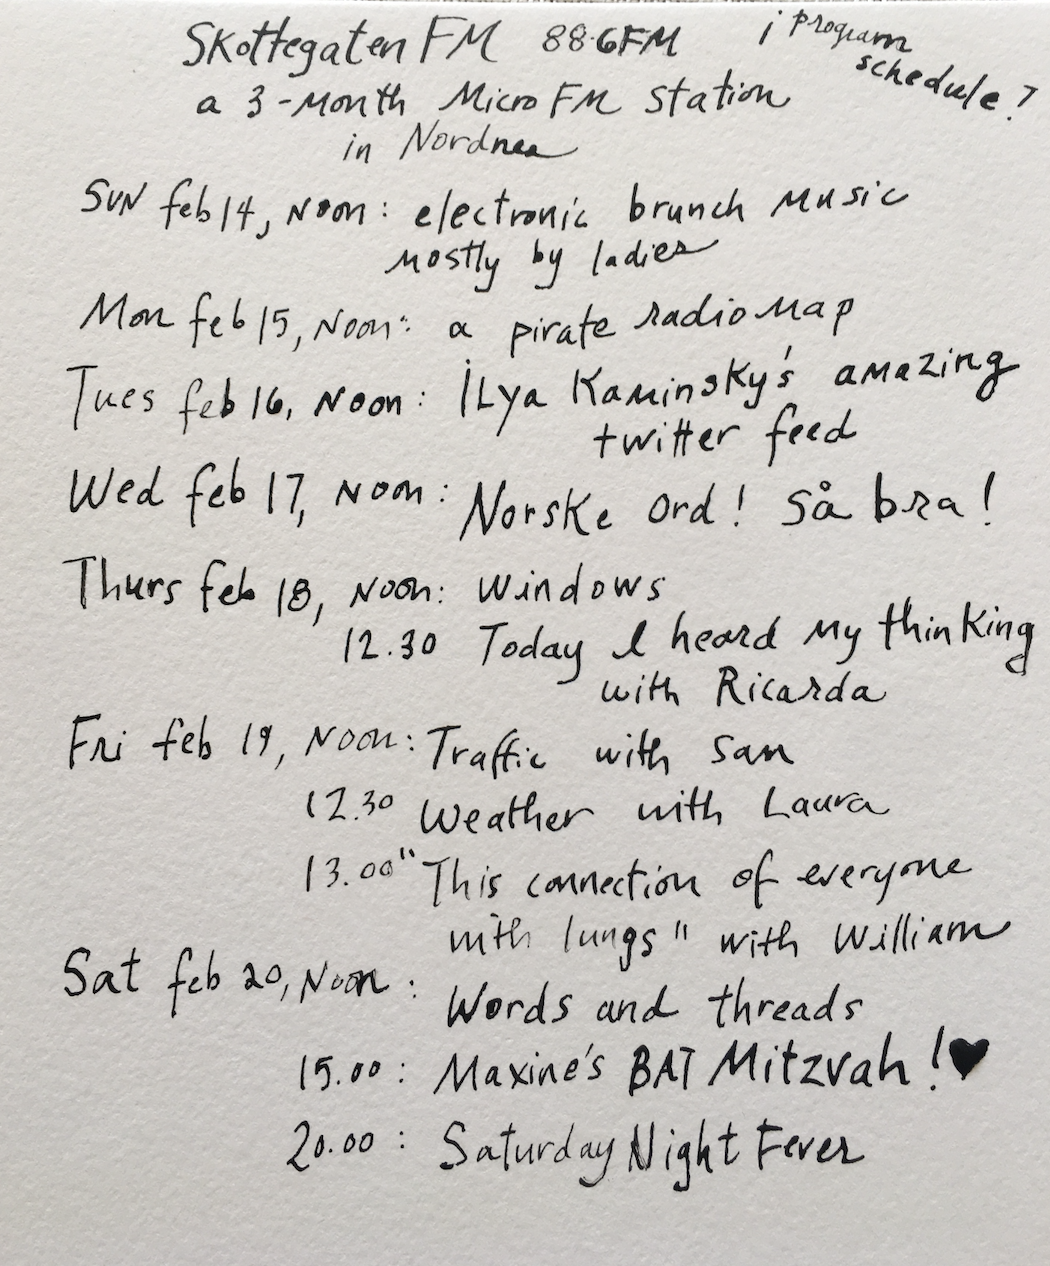 Skottegaten FM 88.6FM
¡ program schedule?
a 3-month Micro FM station
in Nordnes
Sun feb 14, noon: electronic brunch music
mostly by ladies
Mon feb 15, noon: a pirate radio map
Tues feb 16, noon: Ilya Kaminsky's amazing
twitter feed
Wed feb 17, noon: Norske ord! Så bra!
Thurs feb 18, noon: windows
12.30 Today I heard my thinking
with Ricarda
Fri feb 19, noon: Traffic with san
12.30 Weather with Laura
13.00 "This connection of everyone
with lungs" with William
Sat feb 20, noon: Words and threads
15.00: Maxine's BAT Mitzvah!♥
20.00: Saturday Night Fever